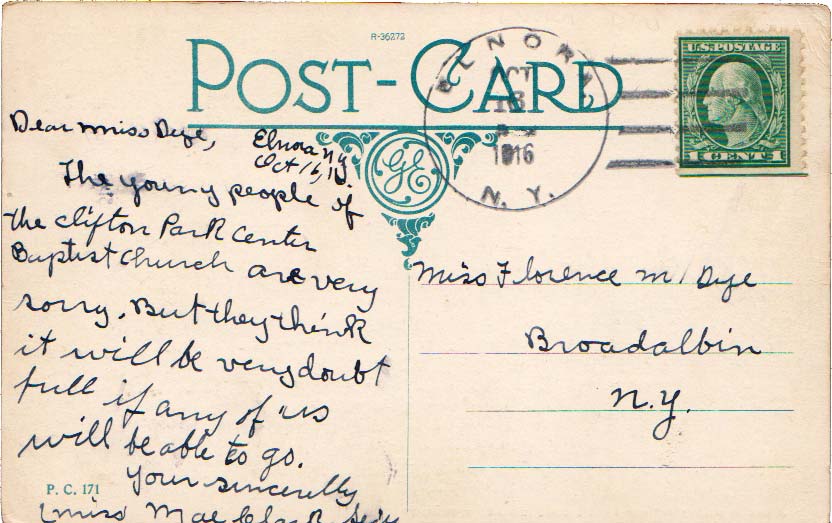 R-36272
POST-CARD
ELNORA
OCT
16
1916
N. Y.
U.S. POSTAGE
1 CENT 1
GE
Dear Miss Dye,
Elnora N.Y.
Oct 16, 16.
The young people of
the Clifton Park Center
Baptist Church are very
sorry. But they think
it will be very doubt
full if any of us
will be able to go.
Your sincerelly
(Miss Mae Clark Sec'y
P. C. 171
Miss Florence M Dye
Broadalbin
N.Y.